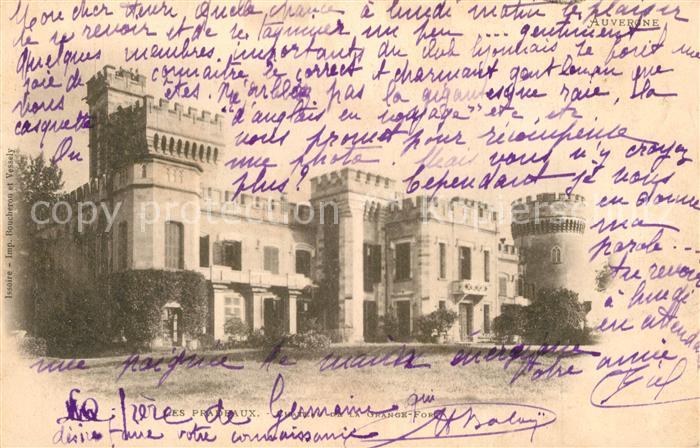 Mon cher Henri, Quelle chance à lundi matin le plaisir
de te revoir et de te taquiner un peu... gentiment
AUVERGNE
Quelques membres importants du club lyonnais se font une
joie de connaître le correct et charmant gentleman que
vous êtes. N'oubliez pas la gigantesque raie, la
casquette "d'anglais en voyage" etc, etc
On vous promet pour récompense
une photo. Mais vous n'y croyez
plus? Cependant je vous
en donne
ma
parole...
Au revoir
à lundi
en attendant
une poignée de mains énergique
Votre amie
LES PRADEAUX. - DE LA GRANGE-FOR
La frère de Germaine qui
désire faire votre connaissance
Issoire - Imp. Boucheron et Vessely
copy protected
Kiper